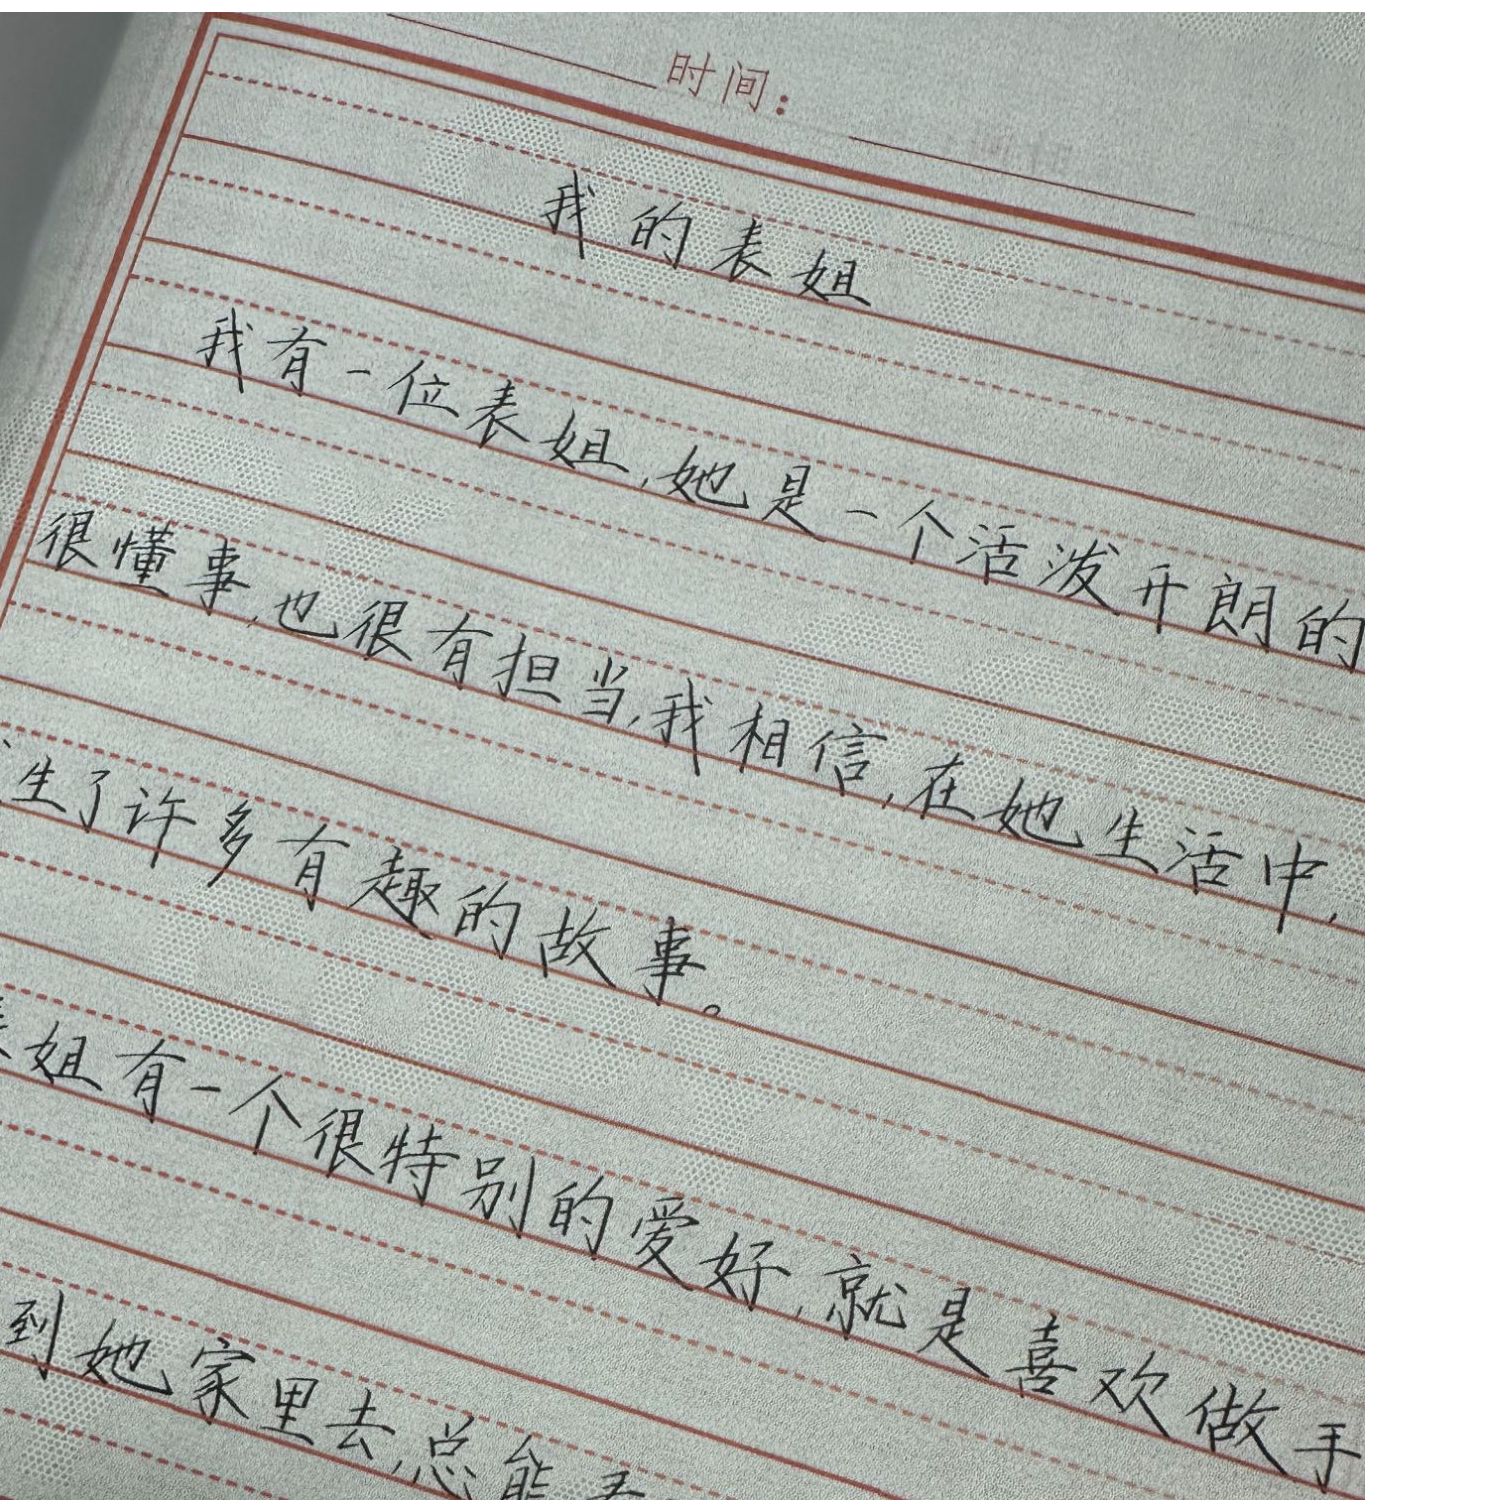 时间：
我的表姐
我有一位表姐，她是一个活泼开朗的
很懂事，也很有担当，我相信，在她生活中，
生了许多有趣的故事。
表姐有一个很特别的爱好，就是喜欢做手
到她家里去，总能看